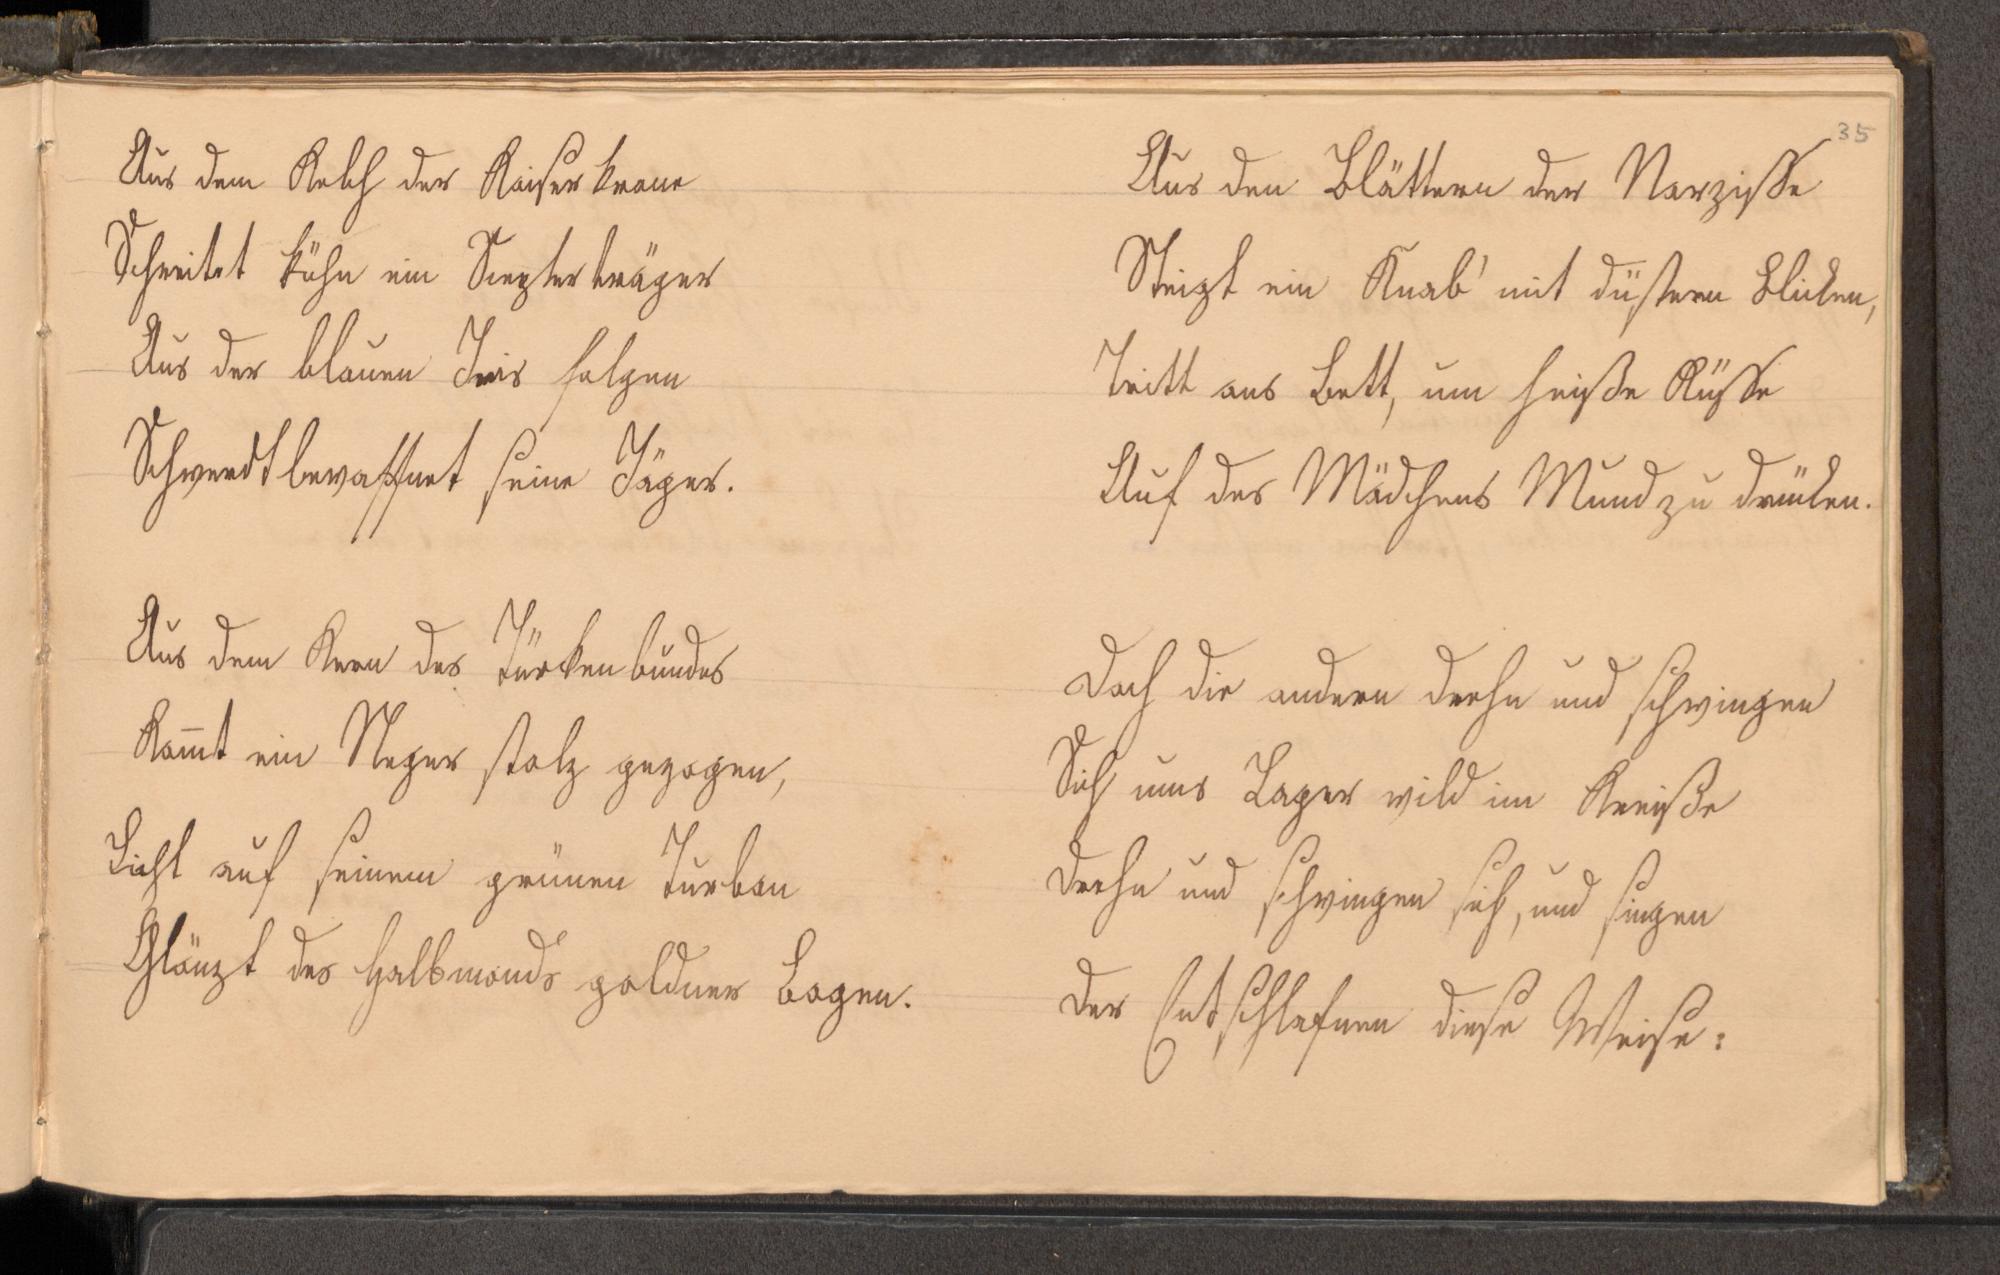 35
Aus dem Kelch der Kaiserkrone
Schreitet kühn ein Scepterträger
Aus der blauen Iris folgen
Schwerdtbewaffnet seine Jäger.
Aus dem Kern des Türkenbundes
Kom̄t ein Neger stolz gezogen,
Licht auf seinem grünen Turban
Glänzt des Halbmonds goldner Bogen.
Aus den Blättern der Narzisse
Steigt ein Knab' mit düstern Blicken,
Tritt ans Bett, um heiße Küsse
Auf des Mädchens Mund zu drücken.
Doch die andern drehn und schwingen
Sich ums Lager wild im Kreiße
Drehn und schwingen sich, und singen
Der Entschlafnen diese Weise: